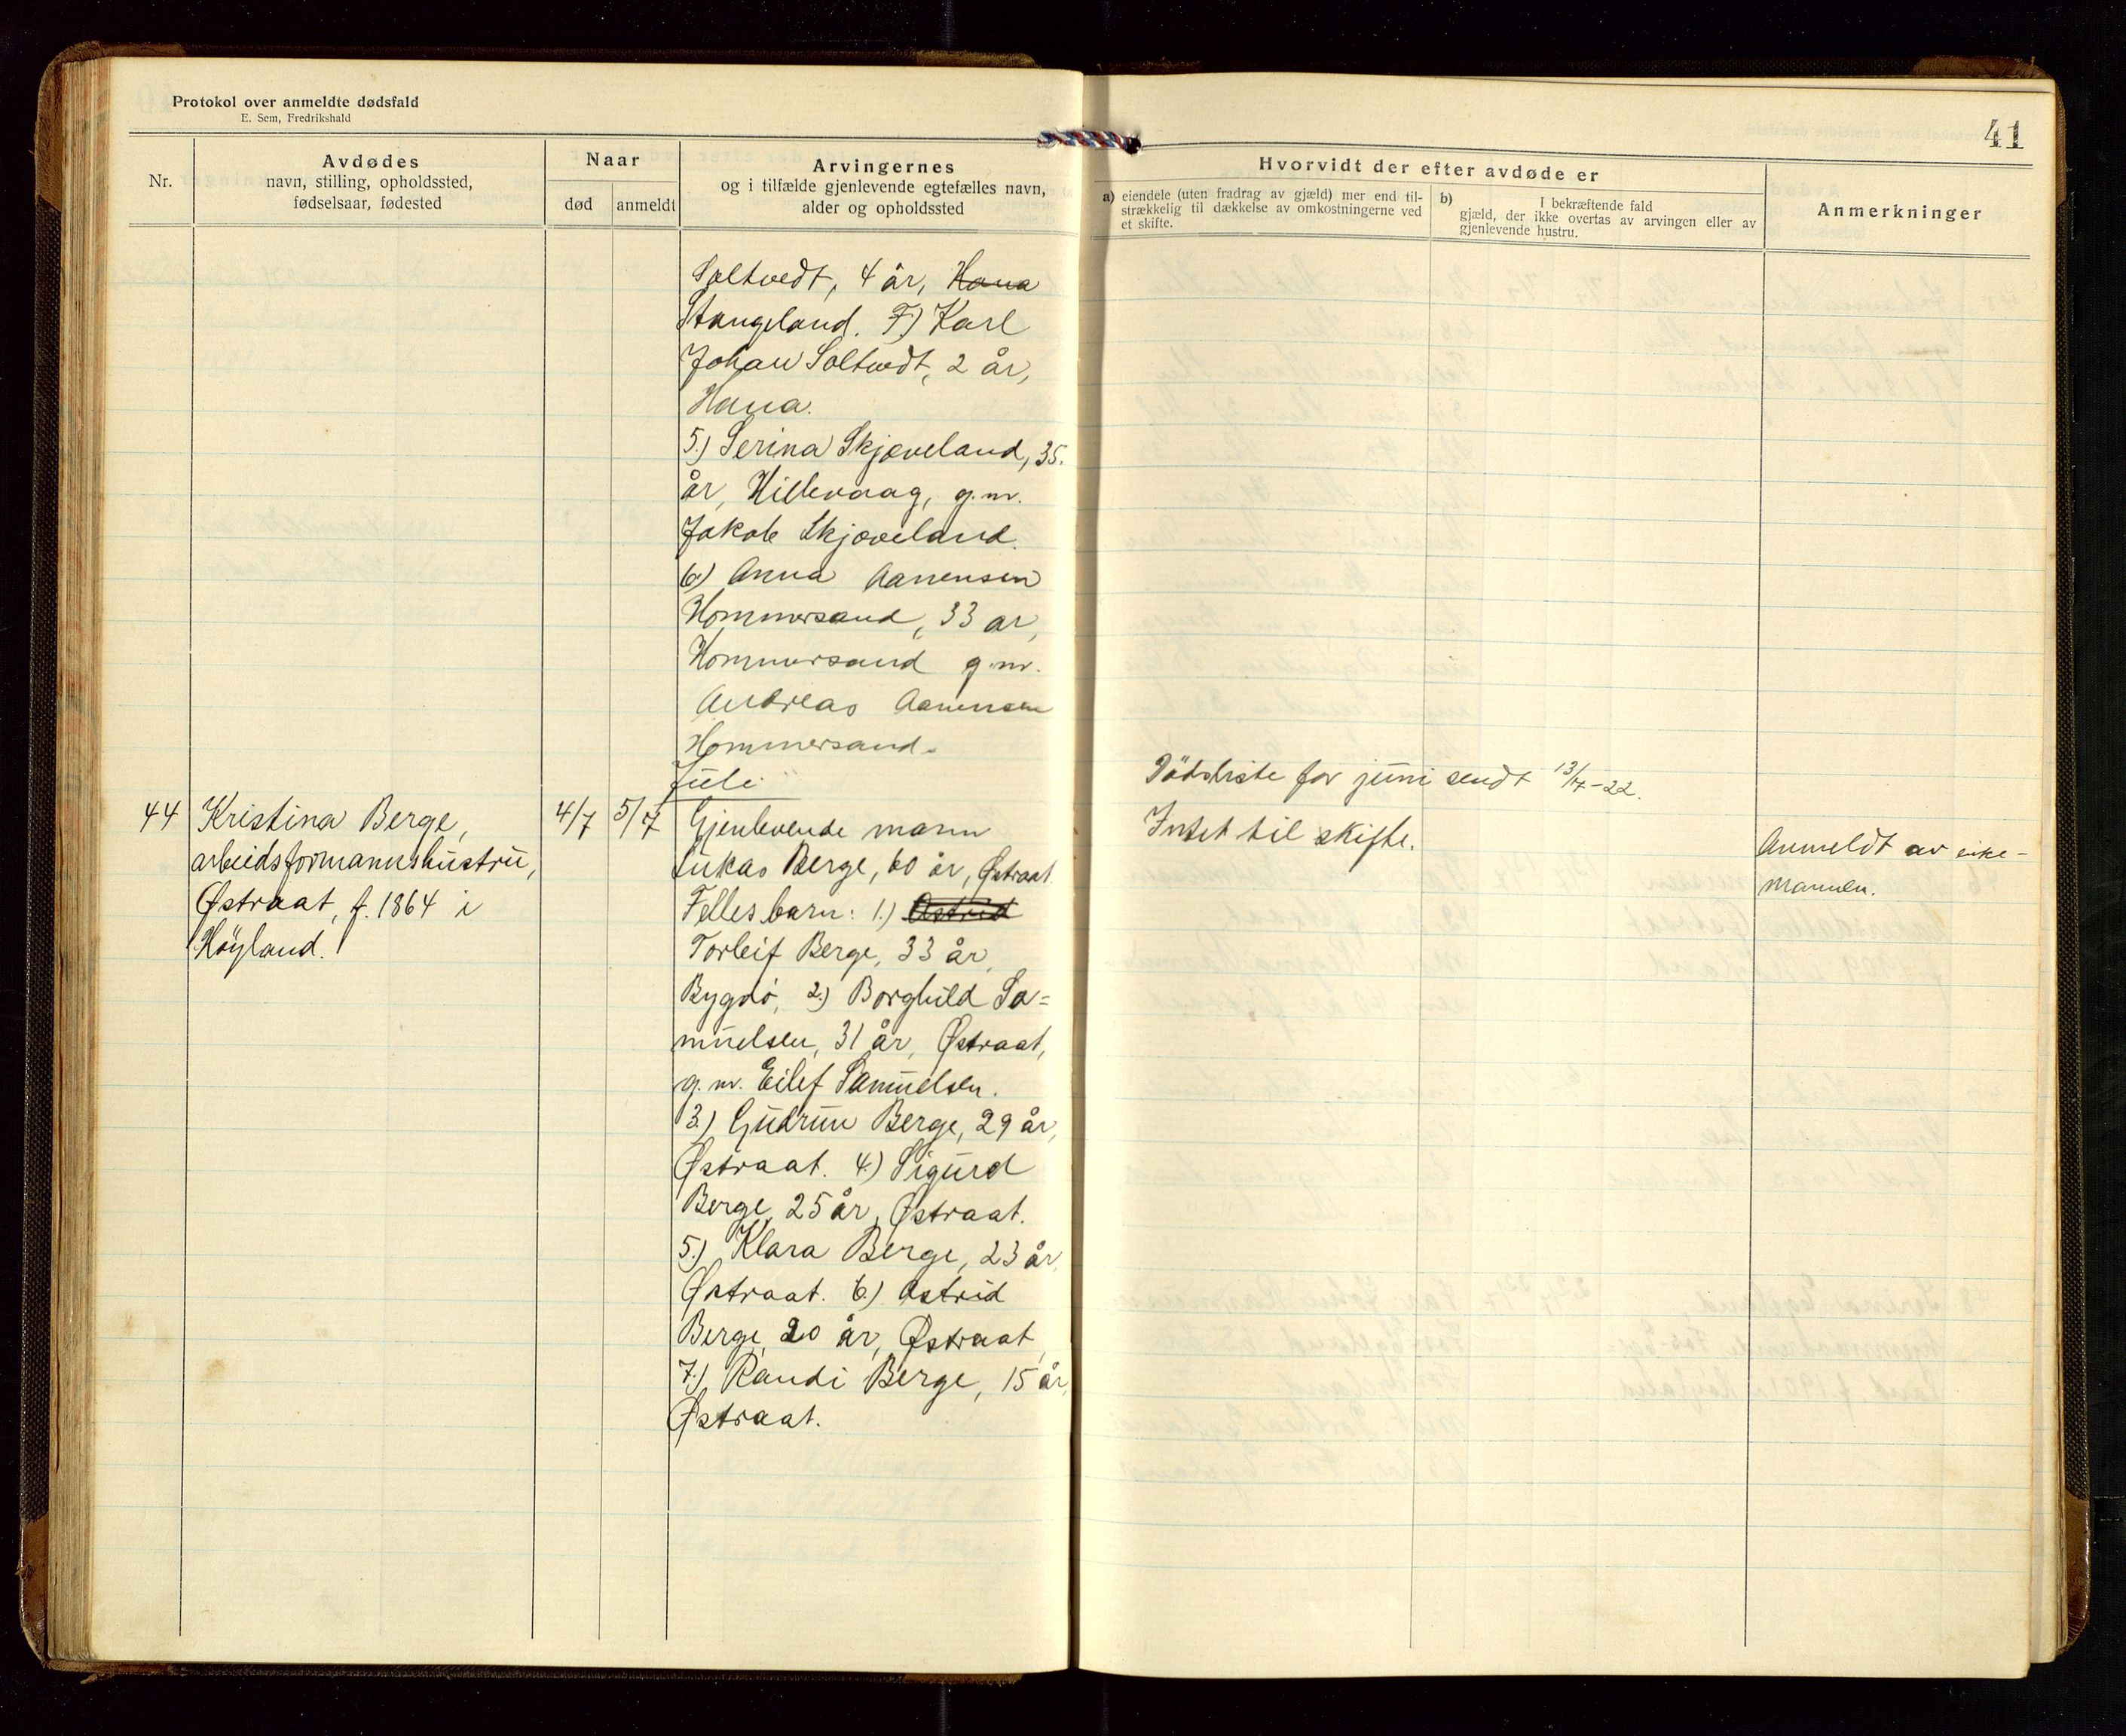 Protokol over anmeldte dødsfald
E. Sem, Fredrikshald
41
Nr.
Avdødes
navn, stilling, opholdssted,
fødselsaar, fødested
Naar
død
anmeldt
Arvingernes
og i tilfælde gjenlevende egtefælles navn,
alder og opholdssted
Hvorvidt der efter avdøde er
a) eiendele (uten fradrag av gjæld) mer end til-
strækkelig til dækkelse av omkostningerne ved
et skifte.
b) I bekræftende fald
gjæld, der ikke overtas av arvingen eller av
gjenlevende hustru.
Anmerkninger
Soltvedt, 4 år, Hana
Stangeland. F) Karl
Johan Soltvedt, 2 år,
Hana.
5.) Serina Skjæveland, 35
år, Hillevaag, g.m.
Jakob Skjæveland.
6) Anna Aanensen
Hommersand, 33 ar,
Hommersand g.m.
Andreas Aanensen
Hommersand.
Juli
Dödsliste for juni sendt 13/7-22.
44
Kristina Berge,
arbeidsformannshustru,
Østraat, f. 1864 i
Höyland.
4/7
5/7
Gjenlevende mann
Lukas Berge, 60 år, Østraat.
Felles barn: 1.) Astrid
Torleif Berge, 33 år,
Bygdö, 2.) Borghild Sa=
muelsen, 31 år, Østraat,
g.m. Eilef Samuelsen.
3.) Gudrun Berge, 29 år,
Østraat. 4.) Sigurd
Berge, 25 år, Østraat.
5.) Klara Berge, 23 år,
Østraat. 6.) Astrid
Berge, 20 år, Østraat,
7.) Randi Berge, 15 år,
Østraat.
Intet til skifte.
Anmeldt av enke-
mannen.